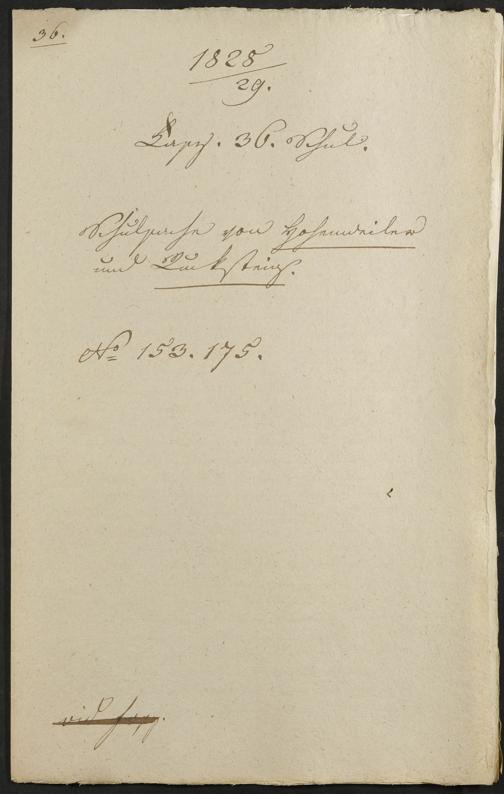 36.
1828
29.
Fasz. 36. Schul.
Schulsache von Hohenweiler
und Lucksteig.
No 153. 175.
vid